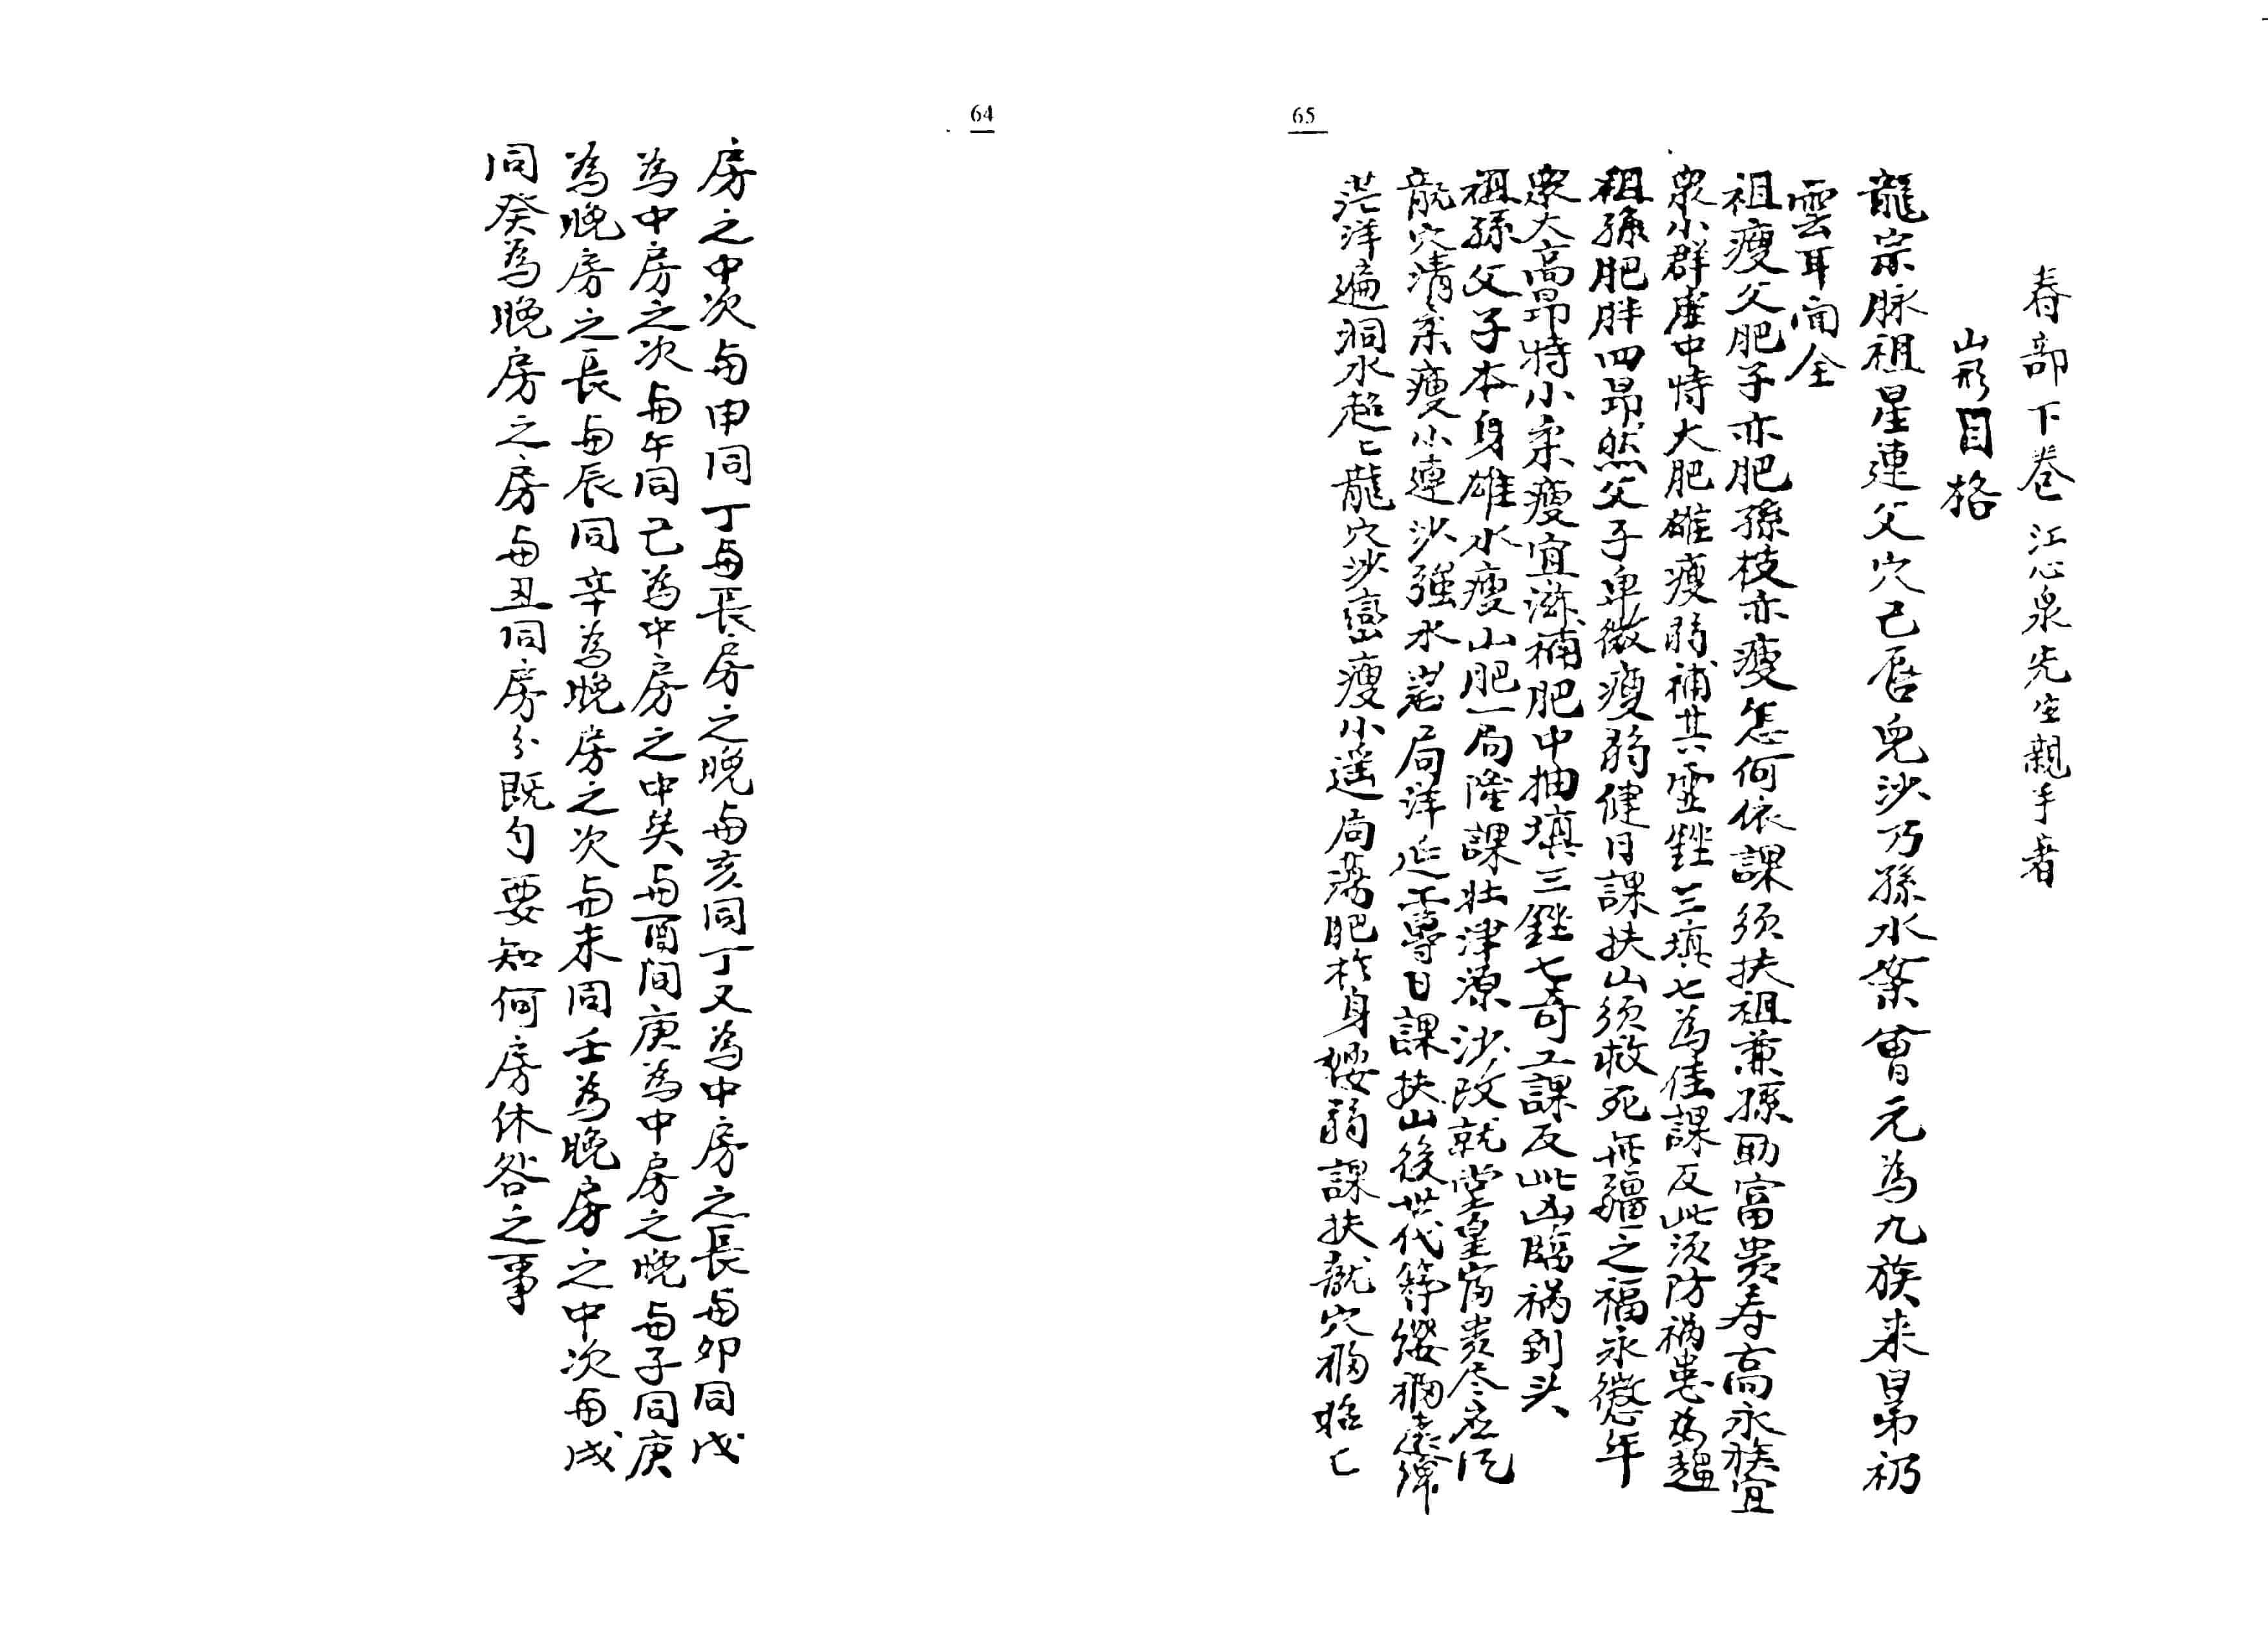 64
房之中次與申同丁與長房之晚與亥同丁又為中房之長與卯同戊
為中房之次與午同己為中房之中矣與酉同庚為中房之晚與子同庚
為晚房之長與辰同辛為晚房之次與未同壬為晚房之中次與戌
同癸為晚房之房與丑同房分既勻要知何房休咎之事
65
春部下卷 江心泉先生親手著
山形目格
龍宗脉祖星連父穴己唇兒沙乃孫水案曾元為九族来昆弟礽
雲耳聞全
祖瘦父肥子亦肥孫枝亦瘦怎何依課須扶祖兼孫助富貴寿高永族宜
衆小群崖中恃大肥雄瘦弱補其靈 三填七為佳課反此須防禍患為
祖孫肥胖四昂然父子卑微瘦弱健日課扶山須救死無疆之福永 年
衆大高昂特小柔瘦宜滋補肥中抽填三 七奇工課反此凶臨禍到头
祖孫父子本身雄水瘦山肥一局隆課壯津源沙改就堂皇富貴尽应
龍穴清柔瘦小連沙强水 局洋延 日課扶山後世代簪纓 遠
茫洋遍洞水超匕龍穴沙巒瘦小遥局蕩肥於身 弱課扶龍穴 始亡